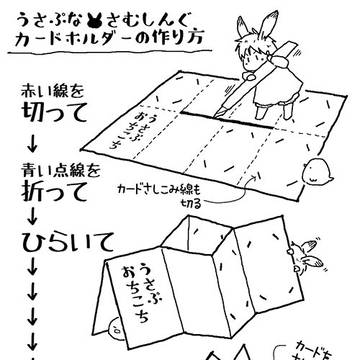 うさぷな さむしんぐ
カードホルダーの作り方
赤い線を
切って
↓
青い点線を
折って
↓
ひらいて
↓
↓
↓
↓
↓
うさぷ
おちこち
カードさしこみ線も
切る
うさぷ
おちこち
カードを